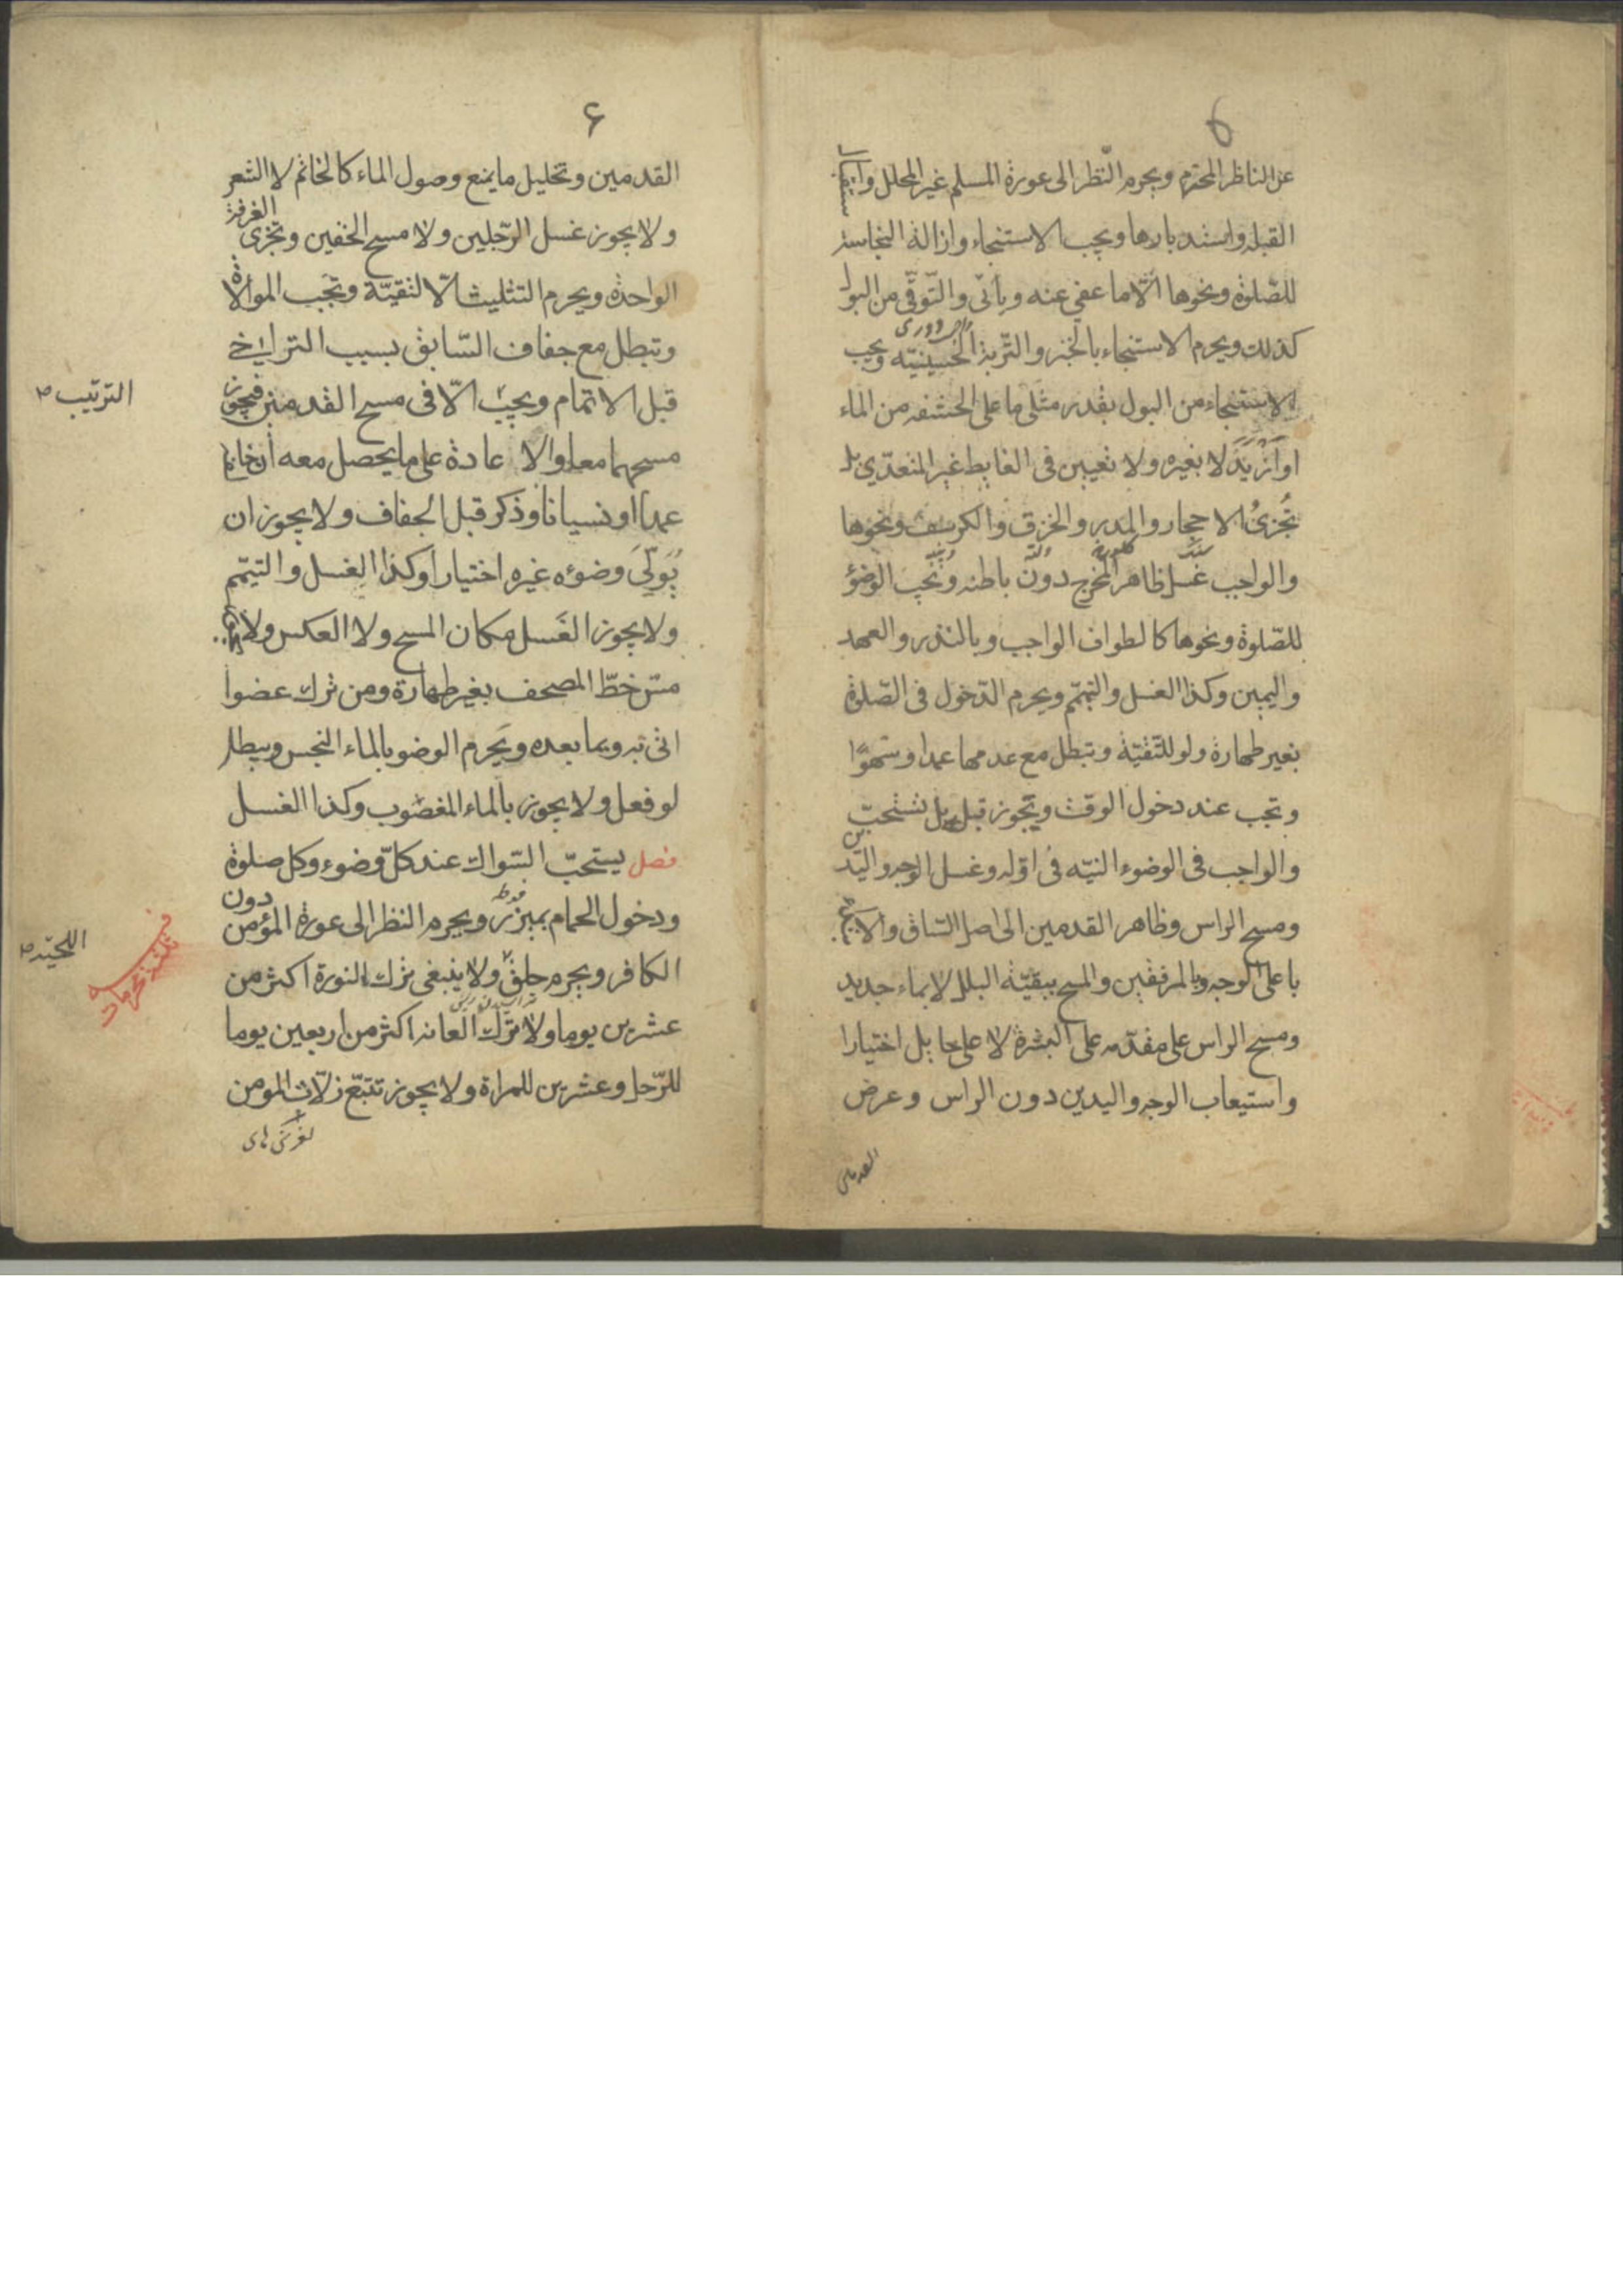 عن الناظر المحترم ويحرم النّظر الى عورة المسلم غير المحلل واستقبال
القبله واستدبارها ويجب الاستنجاء وازالة النجاسة
للصّلوة ونحوها الّا ما عفى عنه وياتى والتّوقّى من البول
كذلك ويحرم الاستنجاء بالخبز والتّربة الحسينيّه ويجب
الاستنجاء من البول بقدر مثلى ما على الحشفه من الماء
او ازيد لا بغيره ولا تعيين فى الغايط غير المتعدّى بل
تُجزئُ الاحجار والمدر والخرق والكرسف ونحوها
والواجب غسل ظاهر المخرج دون باطنه ويجب الوضوُ
للصّلوة ونحوها كالطواف الواجب وبالنذر والعهد
واليمين وكذا الغسل والتيمّم ويحرم الدّخول فى الصّلوة
بغير طهارة ولو للتّقيّة وتبطل مع عدمها عمدا وسَهوًا
وتجب عند دخول الوقت ويَجوز قبله بل تستحبّ
والواجب فى الوضوء النيّه فى اوّله وغسل الوجه واليدين
ومسح الراس وظاهر القدمين الى اصل السّاق والابتداء
باعلى الوجه وبالمرفقين والمسح ببقيّة البلل لا بماء جديد
ومسح الراس على مقدّمه على البشرة لا على حايل اختيارا
واستيعاب الوجه واليدين دون الراس وعرض
القدمين
۶
القدمين وتخليل ما يمنع وصول الماء كالخاتم لا الشعر
ولا يجوز غسل الرّجلين ولا مسح الخفين وتجزى الغرفة
الواحدة ويحرم التثليث الّا لتقيّة وتجب الموالاة
وتبطل مع جفاف السّابق بسبب التراخى
قبل الاتمام ويجب الّا فى مسح القدمين فيجوز
الترتيب ص
مسحهما معا والاعادة على ما يحصل معه ان خالفها
عمدا او نسيانا وذكر قبل الجفاف ولا يجوز ان
يُولّىَ وضوءه غيره اختيارا وكذا الغسل والتيمّم
ولا يجوز الغَسل مكان المسح ولا العكس ولا
مسّ خطّ المصحف بغير طهارة ومن ترك عضوا
اتى به وبما بعده ويَحرم الوضو بالماء النجس ويبطل
لو فعل ولا يجوز بالماء المغصوب وكذا الغسل
فصل يستحبّ السّواك عند كلّ وضوء وكل صلوة
ودخول الحمام بميزر ويحرم النظر الى عورة المؤمن دون
الكافر ويحرم حلق ولا ينبغى ترك النورة اكثر من
اللحيّه ص
عشرين يوما ولا ترك العانه اكثر من اربعين يوما
للرّجل وعشرين للمراة ولا يجوز تتبّع زلّات المومن